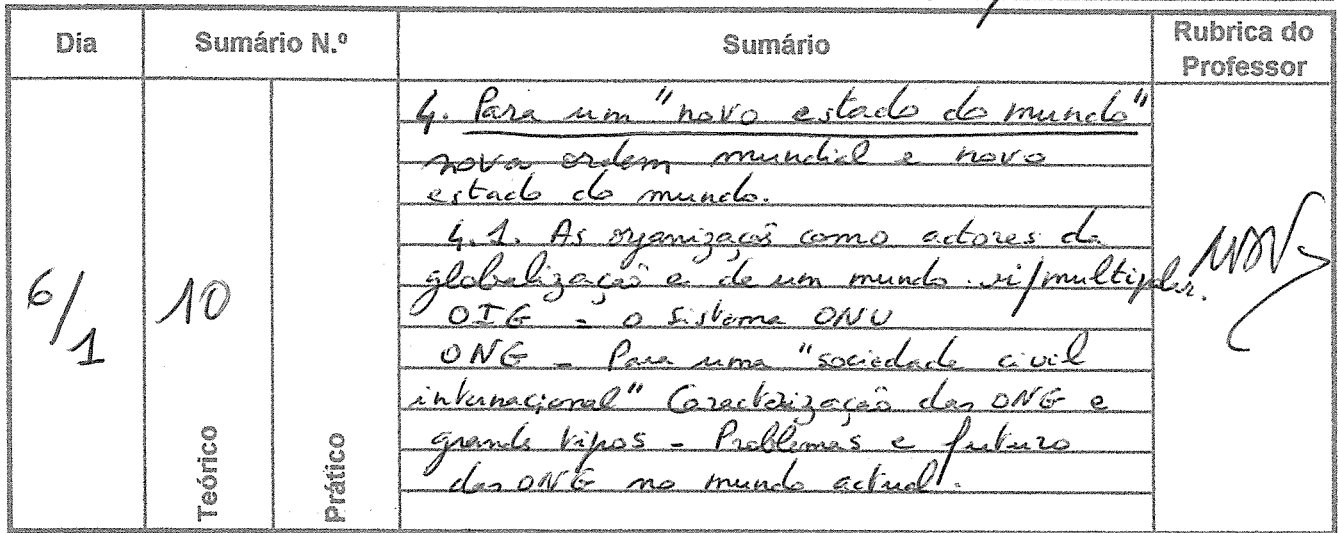 Dia Sumário N.º Sumário Rubrica do Professor
4. Para um "novo estado do mundo"
nova ordem mundial e novo
estado do mundo.
4.1. As organizações como actores da
globalização e de um mundo multipolar.
6/1 10
OIG - o sistema ONU
ONG - Para uma "sociedade civil
internacional" Caracterização das ONG e
grandes tipos - Problemas e futuro
das ONG no mundo actual.
Teórico Prático